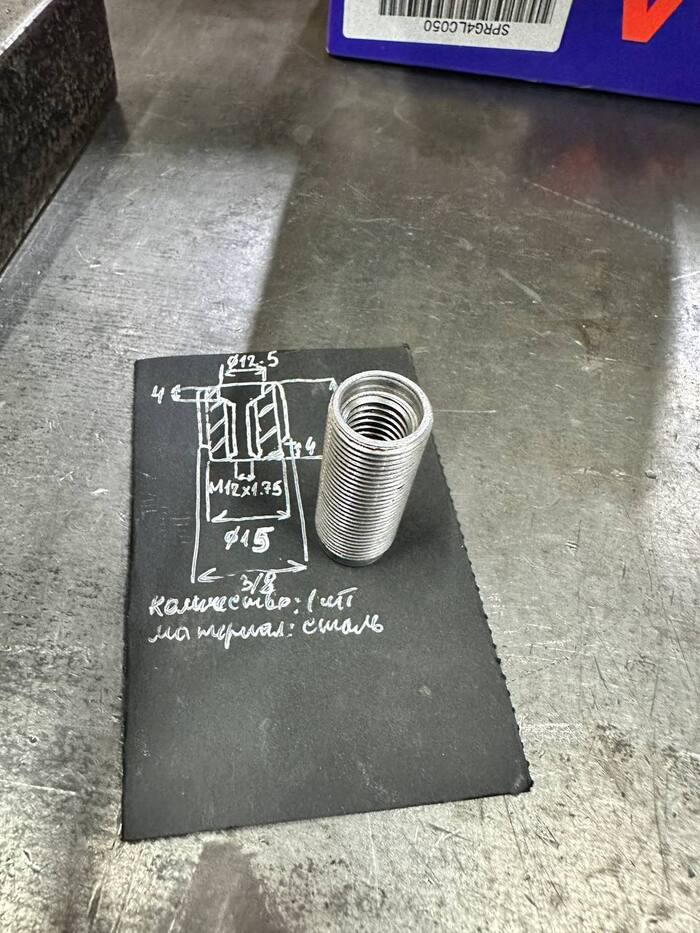 SPRG4LC050
Ø12.5
4
4
M12x1.75
Ø15
3/8
количество: 1 шт
материал: сталь